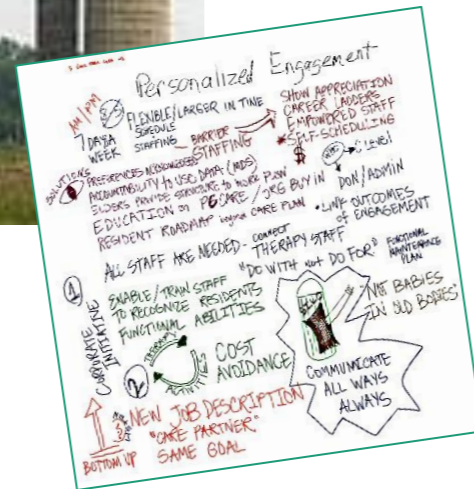 Personalized Engagement
AM/PM
7 DAYS A WEEK
FLEXIBLE/LARGER IN TIME
SCHEDULE
STAFFING
BARRIER
STAFFING
SHOW APPRECIATION
CAREER LADDERS
EMPOWERED STAFF
SELF-SCHEDULING
$
SOLUTIONS
PREFERENCES ACKNOWLEDGED
ACCOUNTABILITY TO USE DATA (MDS)
ELDERS PROVIDE STRUCTURE TO WORK FLOW
EDUCATION on PC CARE / ORG BUY IN
RESIDENT ROADMAP CARE PLAN
C Level
DON/ADMIN
• LINK OUTCOMES
OF ENGAGEMENT
ALL STAFF ARE NEEDED - CONNECT
THERAPY STAFF
"DO WITH not DO FOR"
FUNCTIONAL
MAINTENANCE
PLAN
1
CORPORATE
INITIATIVE
ENABLE/TRAIN STAFF
TO RECOGNIZE RESIDENTS
FUNCTIONAL ABILITIES
"NOT BABIES
IN OLD BODIES"
2
THERAPY
ACTIVITIES
COST
AVOIDANCE
COMMUNICATE
ALL WAYS
ALWAYS
BOTTOM UP
NEW JOB DESCRIPTION
"CARE PARTNER"
SAME GOAL